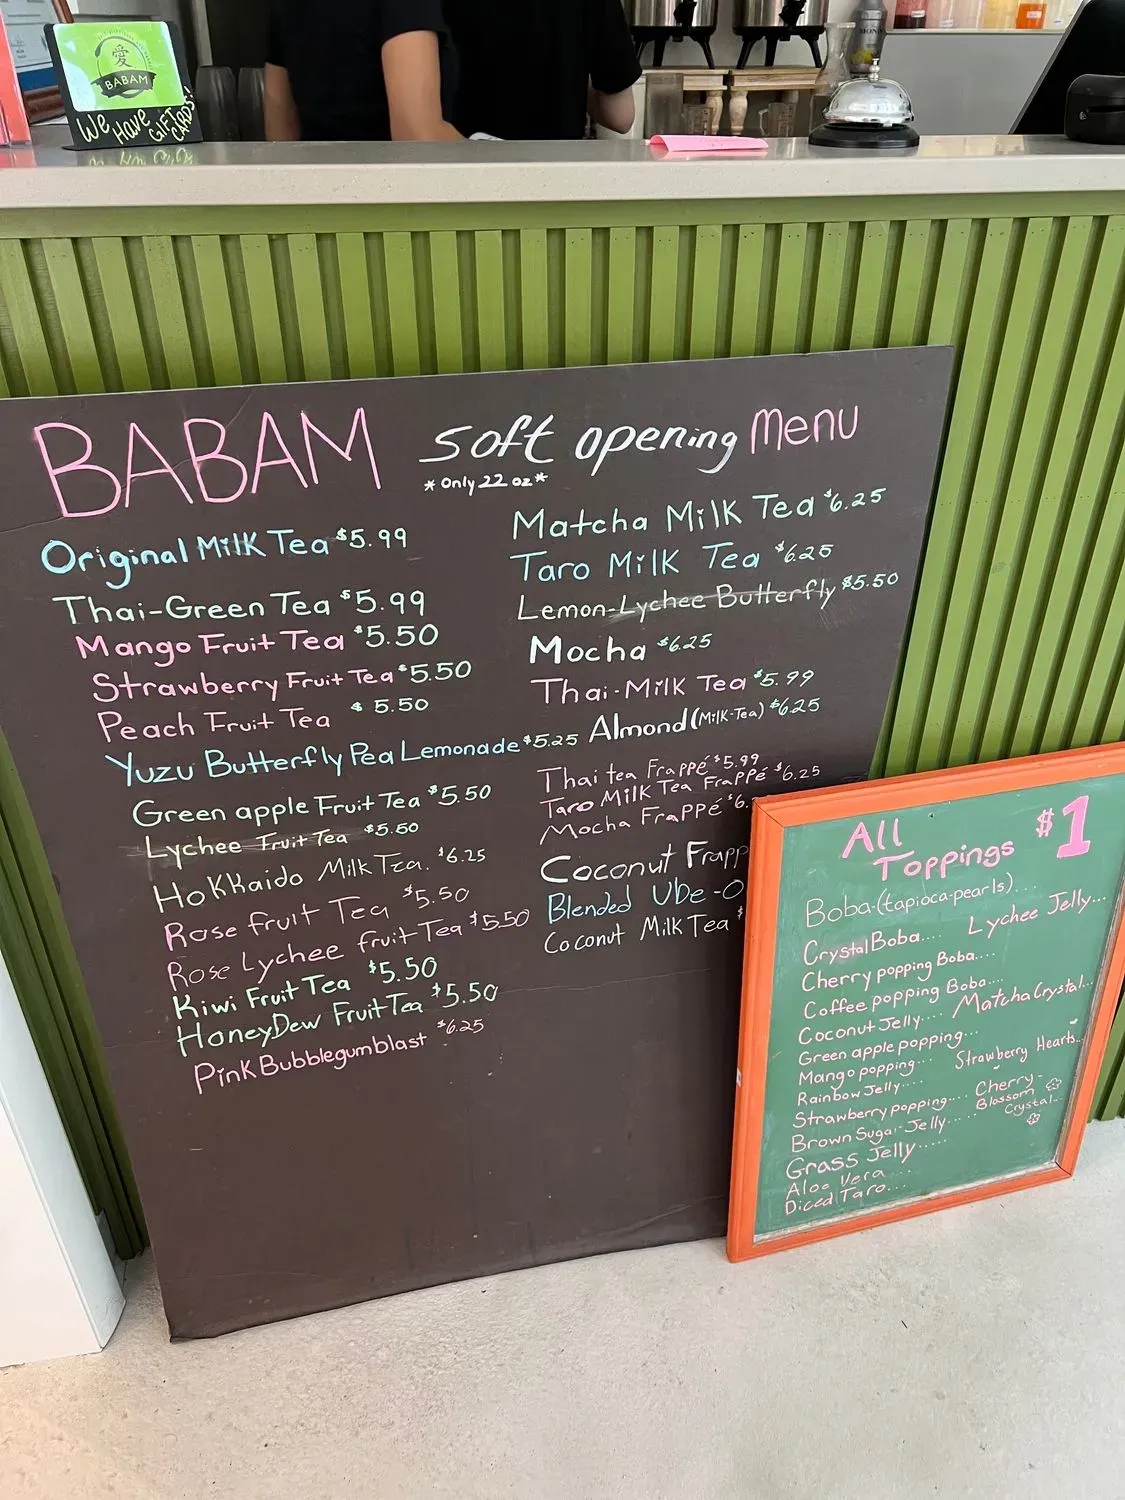 愛
BABAM
We Have GIFT CARDS!
BABAM soft opening Menu
*Only 22 oz*
Original Milk Tea $5.99
Thai-Green Tea $5.99
Mango Fruit Tea $5.50
Strawberry Fruit Tea $5.50
Peach Fruit Tea $5.50
Yuzu Butterfly Pea Lemonade $5.25
Green apple Fruit Tea $5.50
Lychee Fruit Tea $5.50
Hokkaido Milk Tea. $6.25
Rose fruit Tea $5.50
Rose Lychee fruit Tea $5.50
Kiwi Fruit Tea $5.50
HoneyDew Fruit Tea $5.50
Pink Bubblegumblast $6.25
Matcha Milk Tea $6.25
Taro Milk Tea $6.25
Lemon-Lychee Butterfly $5.50
Mocha $6.25
Thai-Milk Tea $5.99
Almond (Milk-Tea) $6.25
Thai tea Frappé $5.99
Taro Milk Tea Frappé $6.25
Mocha Frappé $6.
Coconut Frapp
Blended Ube-O
Coconut Milk Tea $
All Toppings $1
Boba-(tapioca-pearls)...
Crystal Boba.... Lychee Jelly...
Cherry popping Boba....
Coffee popping Boba....
Coconut Jelly.... Matcha Crystal...
Green apple popping...
Mango popping.... Strawberry Hearts...
Rainbow Jelly....
Strawberry popping.... Cherry-Blossom Crystal...
Brown Sugar-Jelly.....
Grass Jelly.....
Aloe Vera....
Diced Taro...